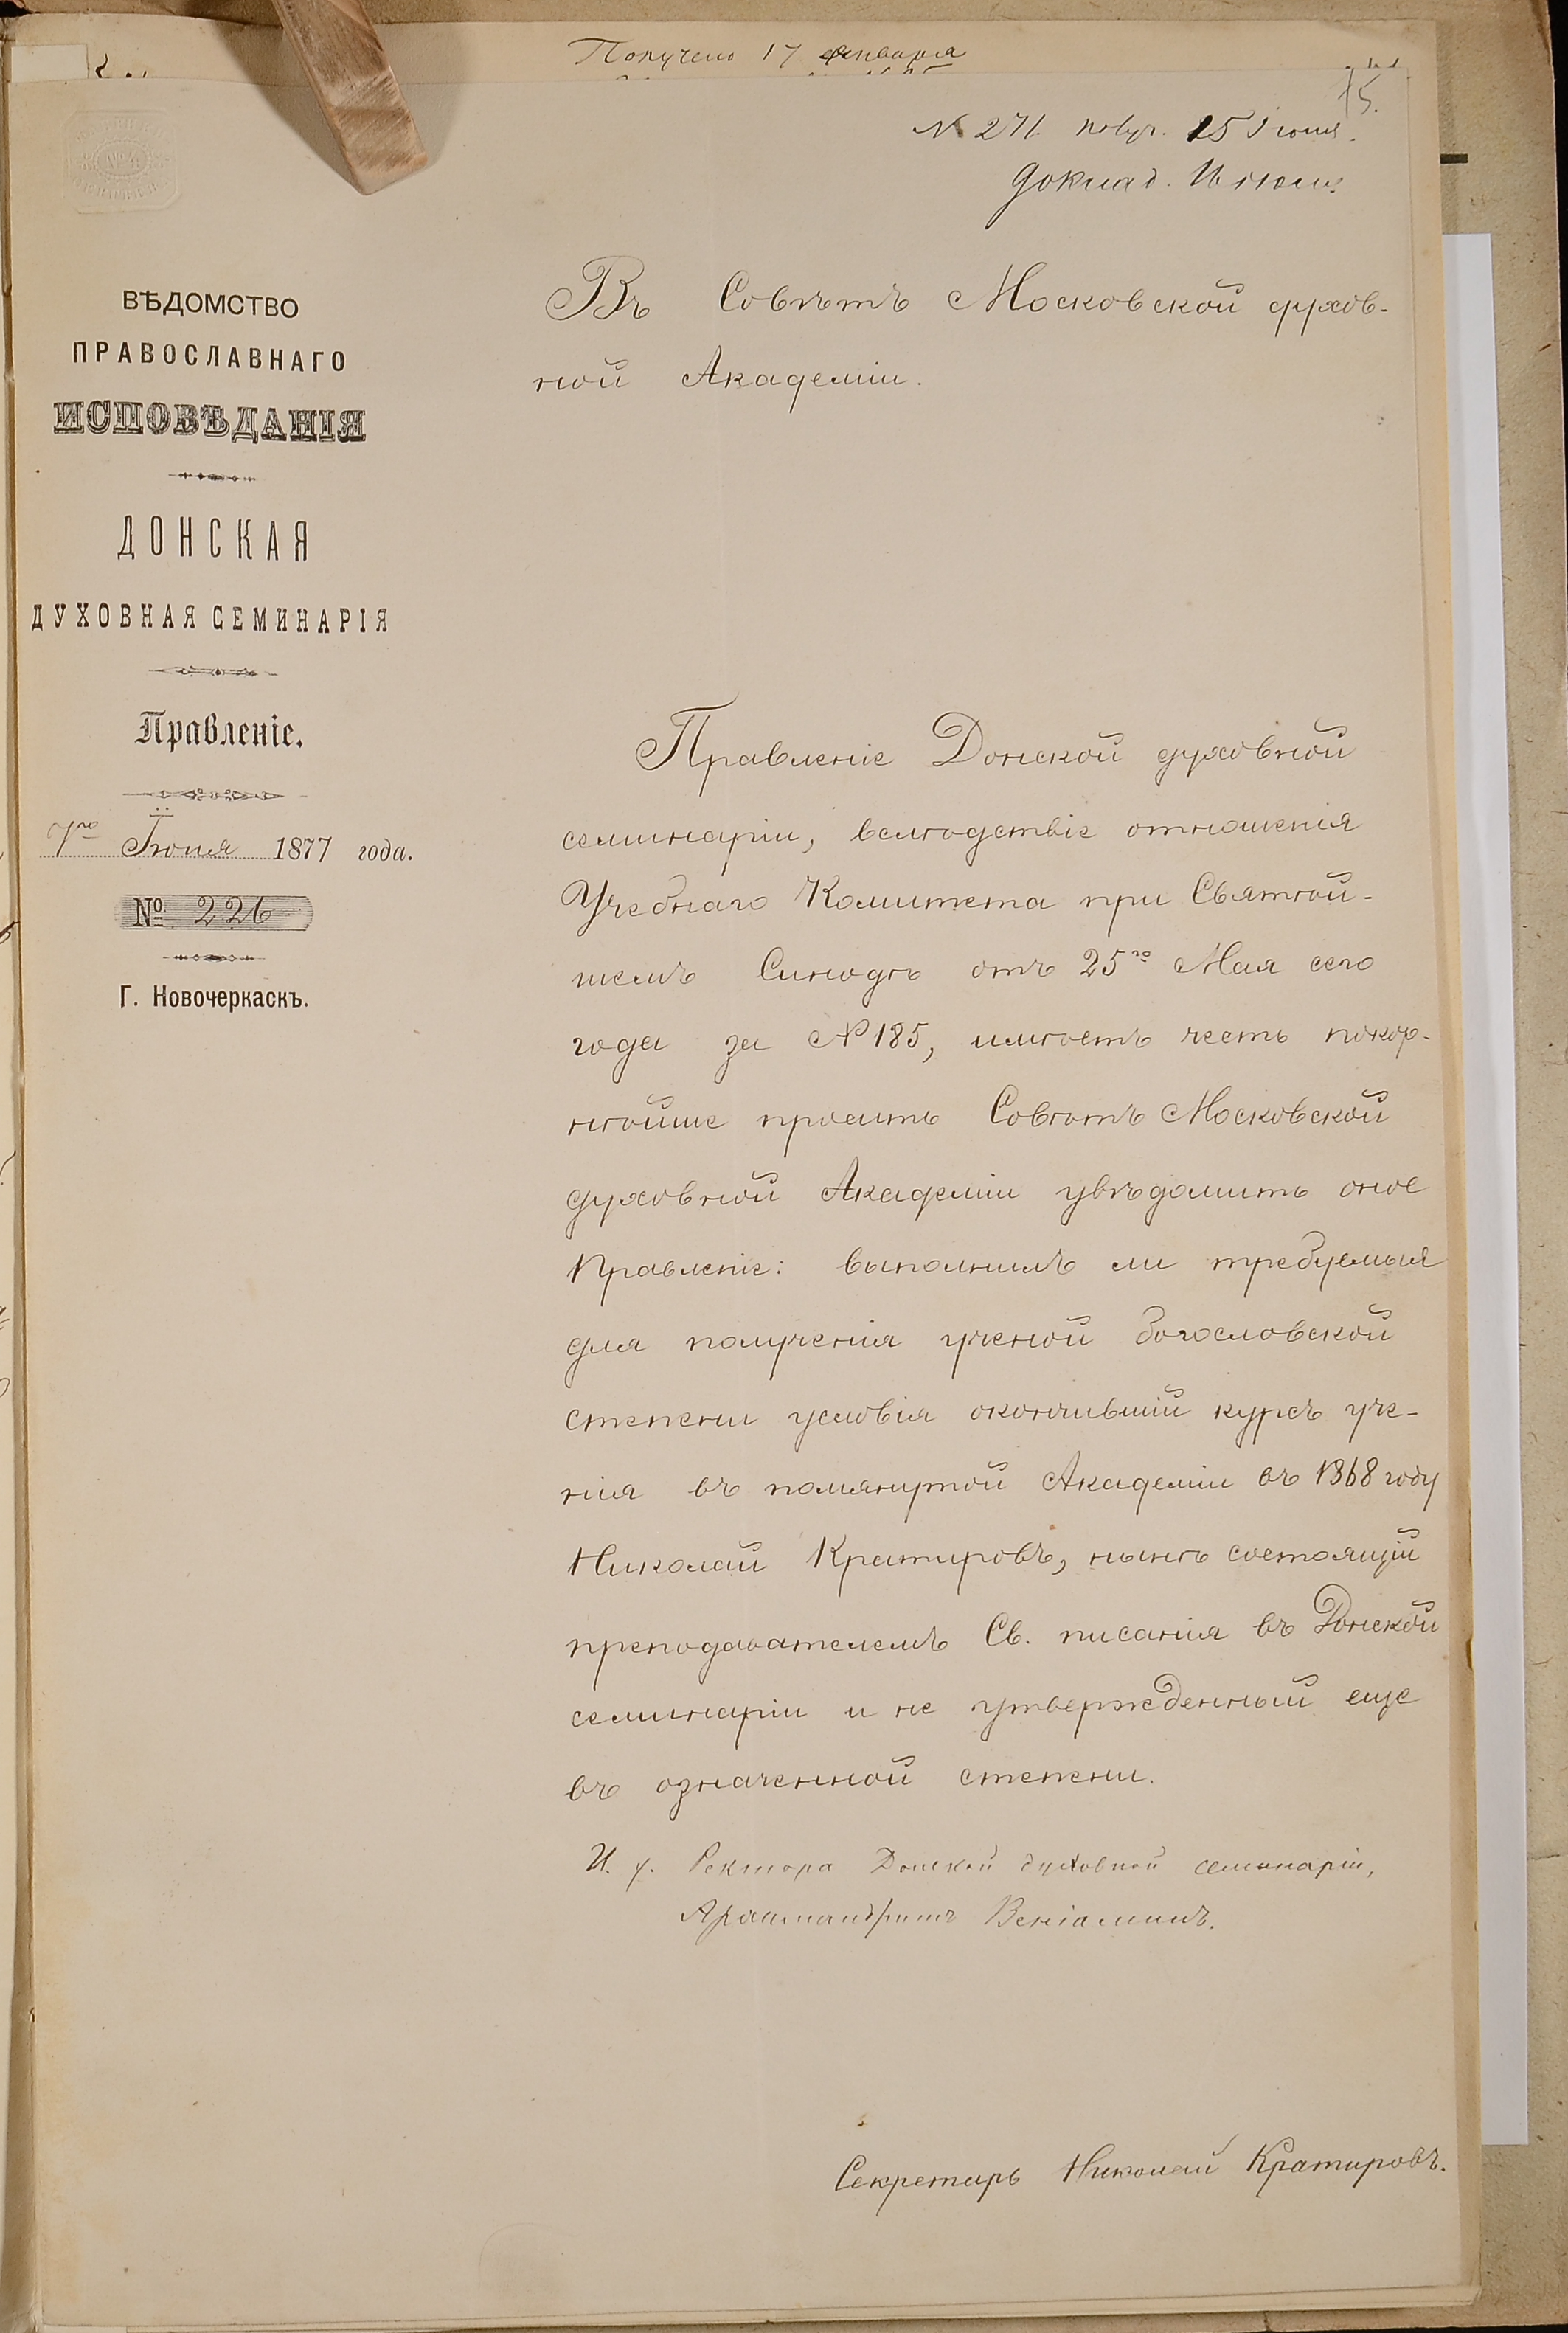 Получено 17 января
15.
№ 271. получ. 15 Iюня.
Доклад.
ВѢДОМСТВО
ПРАВОСЛАВНАГО
ИСПОВѢДАНІЯ
ДОНСКАЯ
ДУХОВНАЯ СЕМИНАРІЯ
Правленіе.
7го Іюня 1877 года.
№ 226
Г. Новочеркаскъ.
Въ Совѣтъ Московской духов-
ной Академіи.
Правленіе Донской духовной
семинаріи, вслѣдствіе отношенія
Учебнаго Комитета при Святѣй-
шемъ Синодѣ отъ 25го Мая сего
года за № 185, имѣетъ честь покор-
нѣйше просить Совѣтъ Московской
духовной Академіи увѣдомить оное
Правленіе: выполнилъ ли требуемыя
для полученія ученой богословской
степени условія окончившій курсъ уче-
нія въ помянутой Академіи въ 1868 году
Николай Кратировъ, нынѣ состоящій
преподавателемъ Св. писанія въ Донской
семинаріи и не утвержденный еще
въ означенной степени.
И. д. Ректора Донской духовной семинаріи,
Архимандритъ Веніаминъ.
Секретарь Николай Кратировъ.